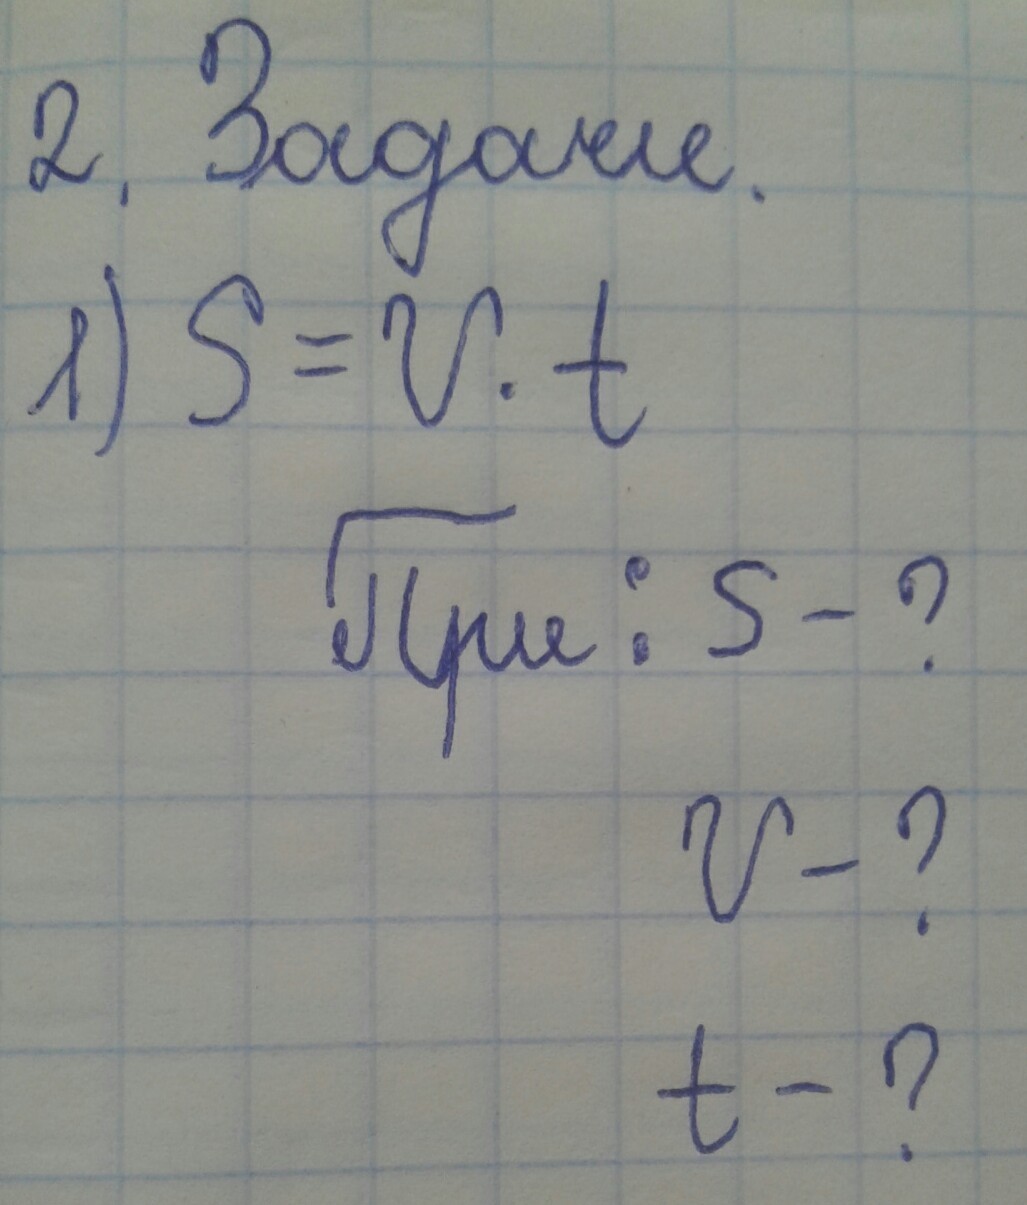 2. Задачи.
1) S = V · t
При: S - ?
V - ?
t - ?